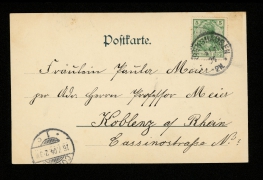 Postkarte.
Fräulein Paula Meier
per Adr. Herrn Professor Meier
Koblenz a/ Rhein
Cassinostraße N: